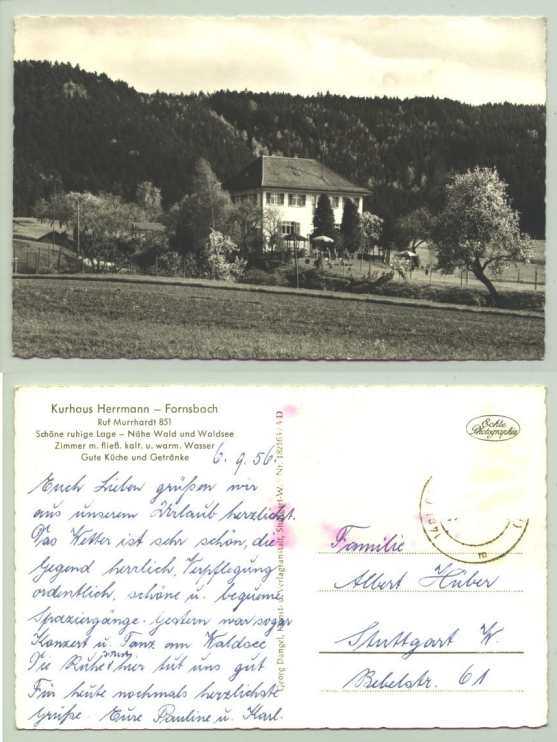 Kurhaus Herrmann – Fornsbach
Ruf Murrhardt 851
Schöne ruhige Lage – Nähe Wald und Waldsee
Zimmer m. fließ. kalt. u. warm. Wasser
Gute Küche und Getränke
6. 9. 56.
Euch Lieben grüßen wir
aus unserem Urlaub herzlichst.
Das Wetter ist sehr schön, die
Gegend herrlich, Verpflegung
ordentlich, schöne u. bequeme
Spaziergänge. Gestern war sogar
Konzert u. Tanz am Waldsee
Die Ruhe hier tut uns gut
Für heute nochmals herzlichste
Grüße. Eure Pauline u. Karl.
Georg Dangel, Kunst- u. Verlagsanstalt, Stuttgart-W.
Echte
Photographie
Familie
Albert Huber
Stuttgart W.
Bebelstr. 61